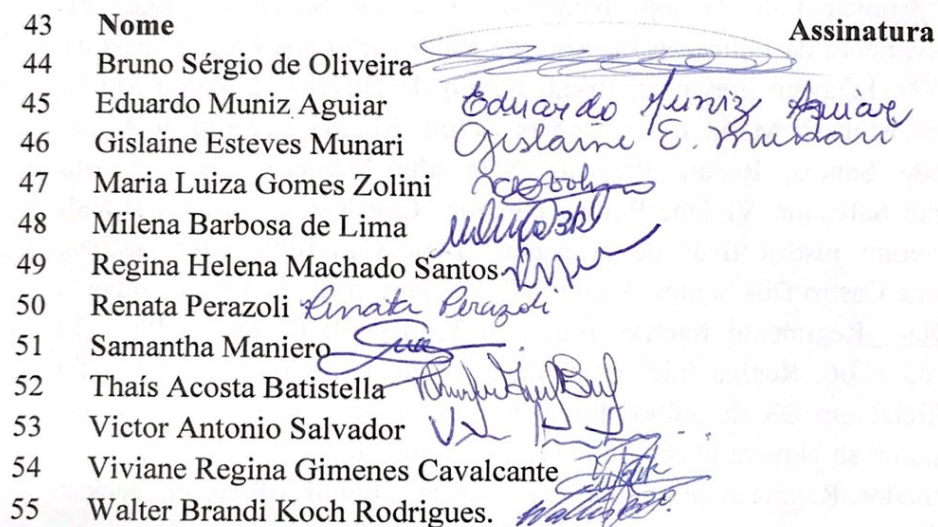 43 Nome Assinatura
44 Bruno Sérgio de Oliveira
45 Eduardo Muniz Aguiar Eduardo Muniz Aguiar
46 Gislaine Esteves Munari Gislaine E. Munari
47 Maria Luiza Gomes Zolini
48 Milena Barbosa de Lima
49 Regina Helena Machado Santos
50 Renata Perazoli Renata Perazoli
51 Samantha Maniero
52 Thaís Acosta Batistella
53 Victor Antonio Salvador
54 Viviane Regina Gimenes Cavalcante
55 Walter Brandi Koch Rodrigues.